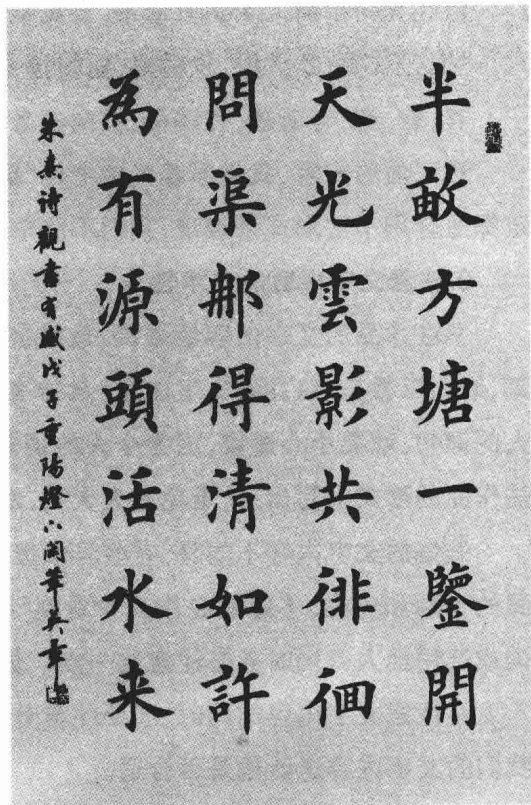 半畝方塘一鑒開
天光雲影共徘徊
問渠那得清如許
為有源頭活水来
朱熹诗觀書有感戊子重陽燈下闻筆吴章